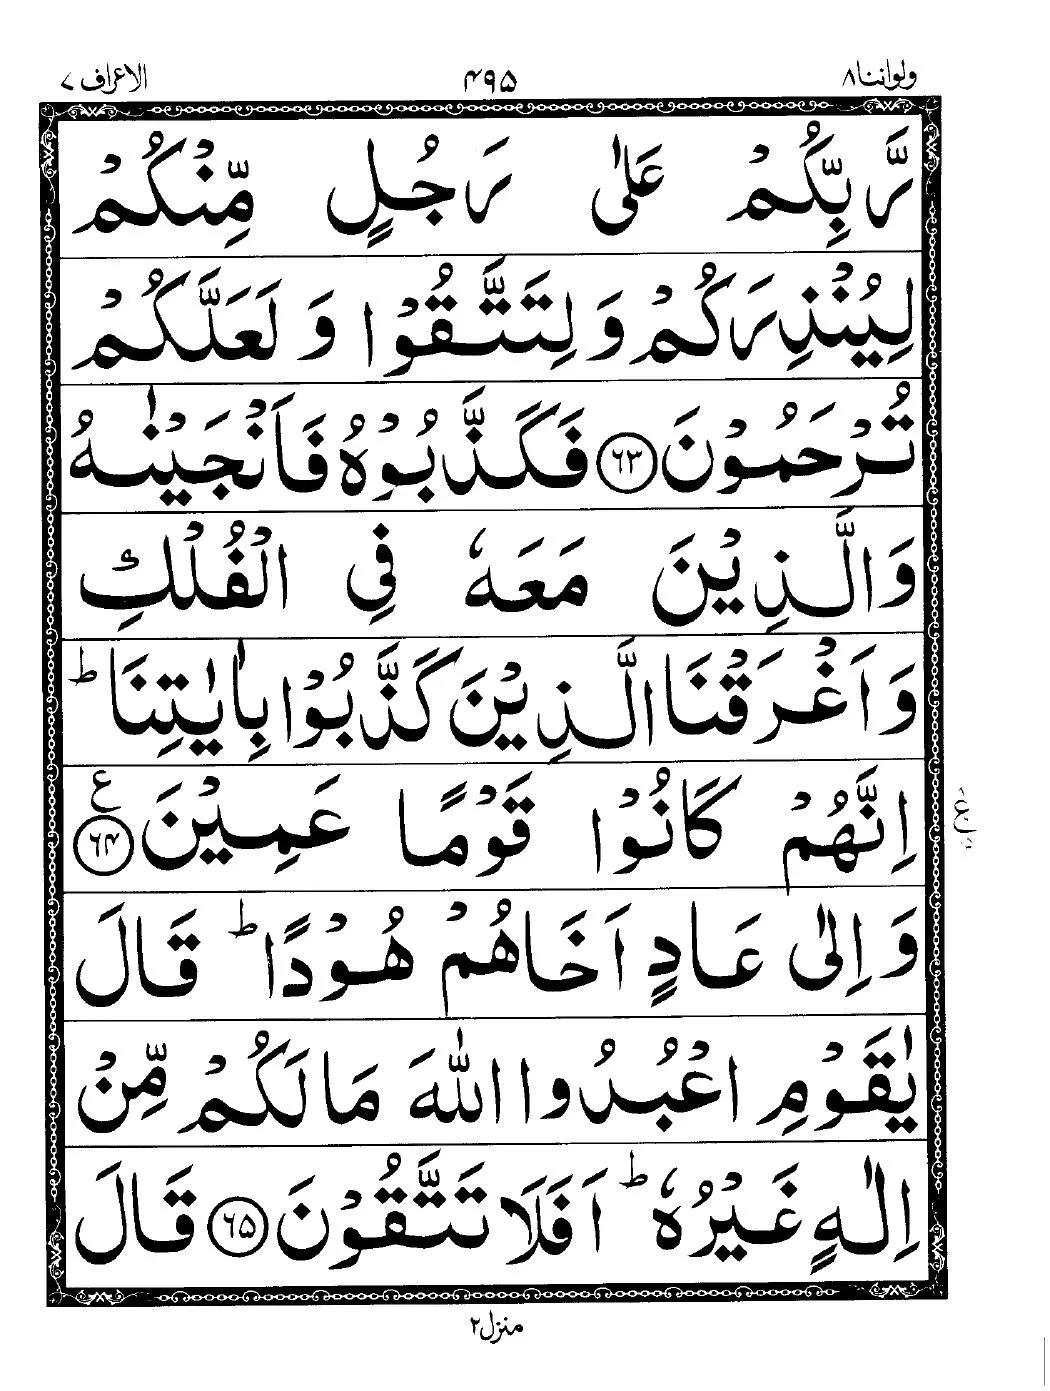 ولواننا ٨ ۴۹۵ الاعراف ٧
رَّبِّكُمْ عَلٰى رَجُلٍ مِّنْكُمْ
لِيُنْذِرَكُمْ وَلِتَتَّقُوْا وَلَعَلَّكُمْ
تُرْحَمُوْنَ ٦٣ فَكَذَّبُوْهُ فَاَنْجَيْنٰهُ
وَالَّذِيْنَ مَعَهٗ فِي الْفُلْكِ
وَاَغْرَقْنَا الَّذِيْنَ كَذَّبُوْا بِاٰيٰتِنَا ؕ
اِنَّهُمْ كَانُوْا قَوْمًا عَمِيْنَ ٦۴ ع
وَاِلٰى عَادٍ اَخَاهُمْ هُوْدًا ؕ قَالَ
يٰقَوْمِ اعْبُدُوا اللّٰهَ مَا لَكُمْ مِّنْ
اِلٰهٍ غَيْرُهٗ ؕ اَفَلَا تَتَّقُوْنَ ٦۵ قَالَ
منزل ٢